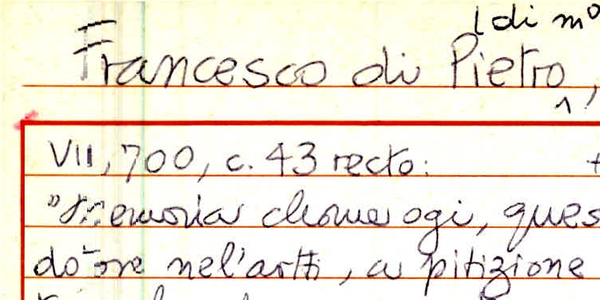 (di m°
Francesco di Pietro,
VII, 700, c. 43 recto:
"Memoria chome ogi, ques
do-ore nel'arti, a pitizione